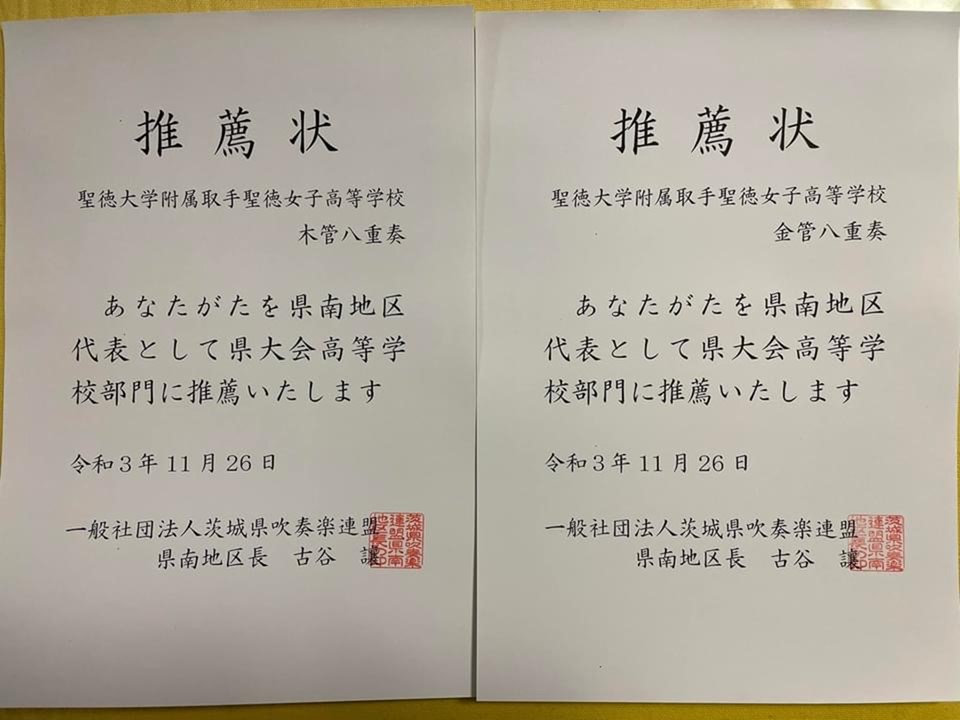 推薦状
聖徳大学附属取手聖徳女子高等学校
木管八重奏
あなたがたを県南地区
代表として県大会高等学
校部門に推薦いたします
令和3年11月26日
一般社団法人茨城県吹奏楽連盟
県南地区長 古谷 讓
推薦状
聖徳大学附属取手聖徳女子高等学校
金管八重奏
あなたがたを県南地区
代表として県大会高等学
校部門に推薦いたします
令和3年11月26日
一般社団法人茨城県吹奏楽連盟
県南地区長 古谷 讓